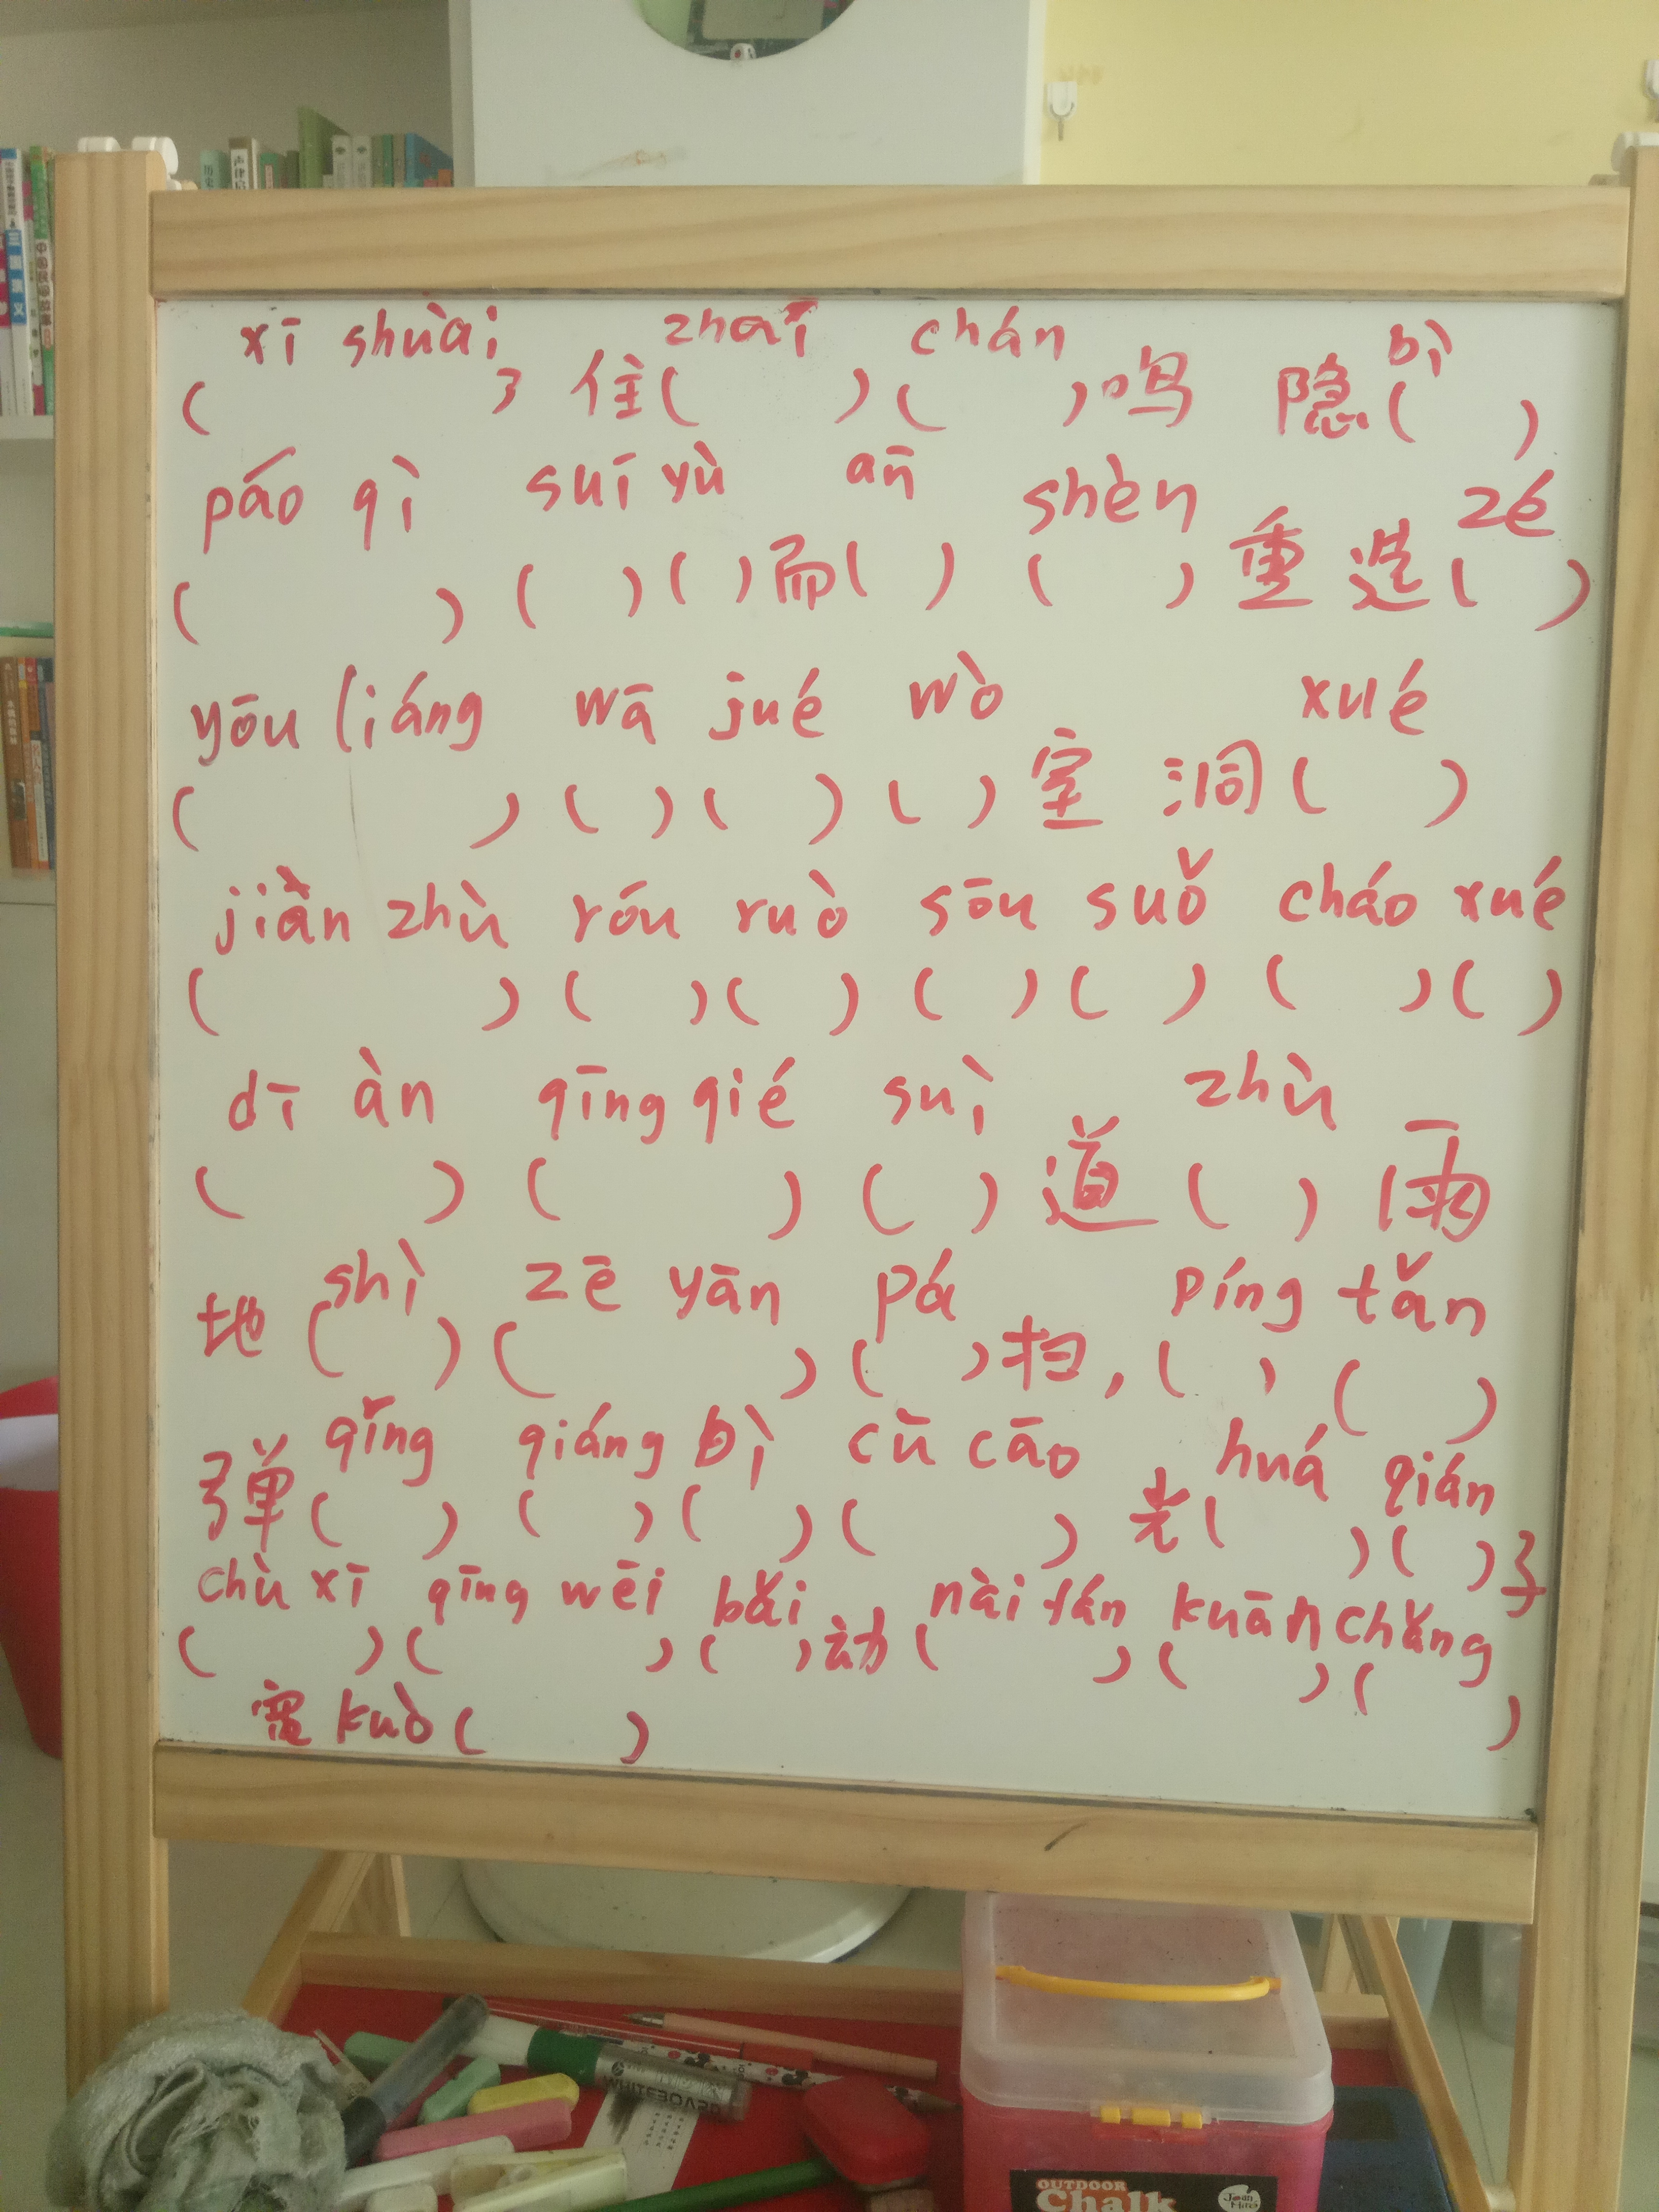 声律启
三国演义
xī shuài zhāi chán bì
( ) 住( ) ( )鸣 隐( )
páo qì suí yù ān shèn zé
( ) ( ) ( )而( ) ( )重 选( )
yōu liáng wā jué wò xué
( ) ( ) ( ) ( )室 洞( )
jiàn zhù róu ruò sōu suǒ cháo xué
( ) ( ) ( ) ( ) ( ) ( ) ( )
dī àn qīng qié suì zhù
( ) ( ) ( )道 ( )雨
shì zē yān pá píng tǎn
地( ) ( ) ( )扫, ( ) ( )
qǐng qiáng bì cū cāo huá qián
弹( ) ( ) ( ) ( ) 光( ) ( )子
chù xī qīng wēi bǎi nài fán kuān chǎng
( ) ( ) ( )动( ) ( ) ( )
宽 kuò ( )
WHITEBOARD
OUTDOOR
Chalk
Joan
Miro